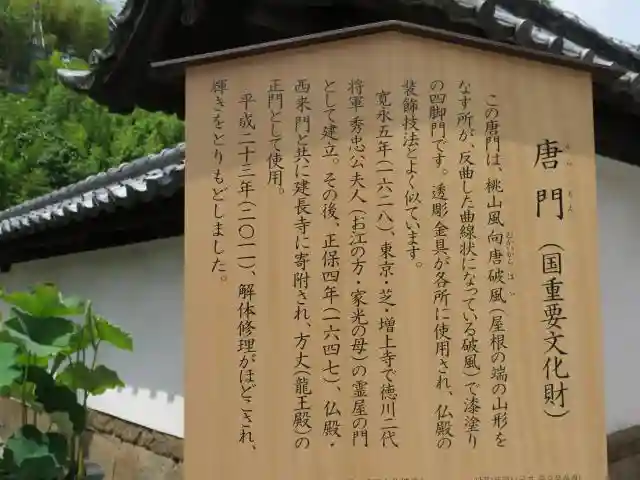 唐門（国重要文化財）
から もん
この唐門は、桃山風向唐破風（屋根の端の山形を
むかいからはふ
なす所が、反曲した曲線状になっている破風）で漆塗り
の四脚門です。透彫金具が各所に使用され、仏殿の
装飾技法とよく似ています。
寛永五年（一六二八）、東京・芝・増上寺で徳川二代
将軍 秀忠公夫人（お江の方・家光の母）の霊屋の門
として建立。その後、正保四年（一六四七）、仏殿・
西来門と共に建長寺に寄附され、方丈（龍王殿）の
正門として使用。
平成二十三年（二〇一一）、解体修理がほどこされ、
輝きをとりもどしました。